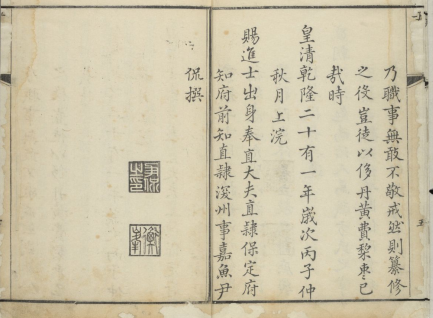 乃職事無敢不敬戒然則纂修
之役豈徒以侈丹黃費棃枣已
㦲時
皇清乾隆二十有一年歲次丙子仲
秋月上浣
賜進士出身奉直大夫直隸保定府
知府前知直隸深州事嘉魚尹
侃撰